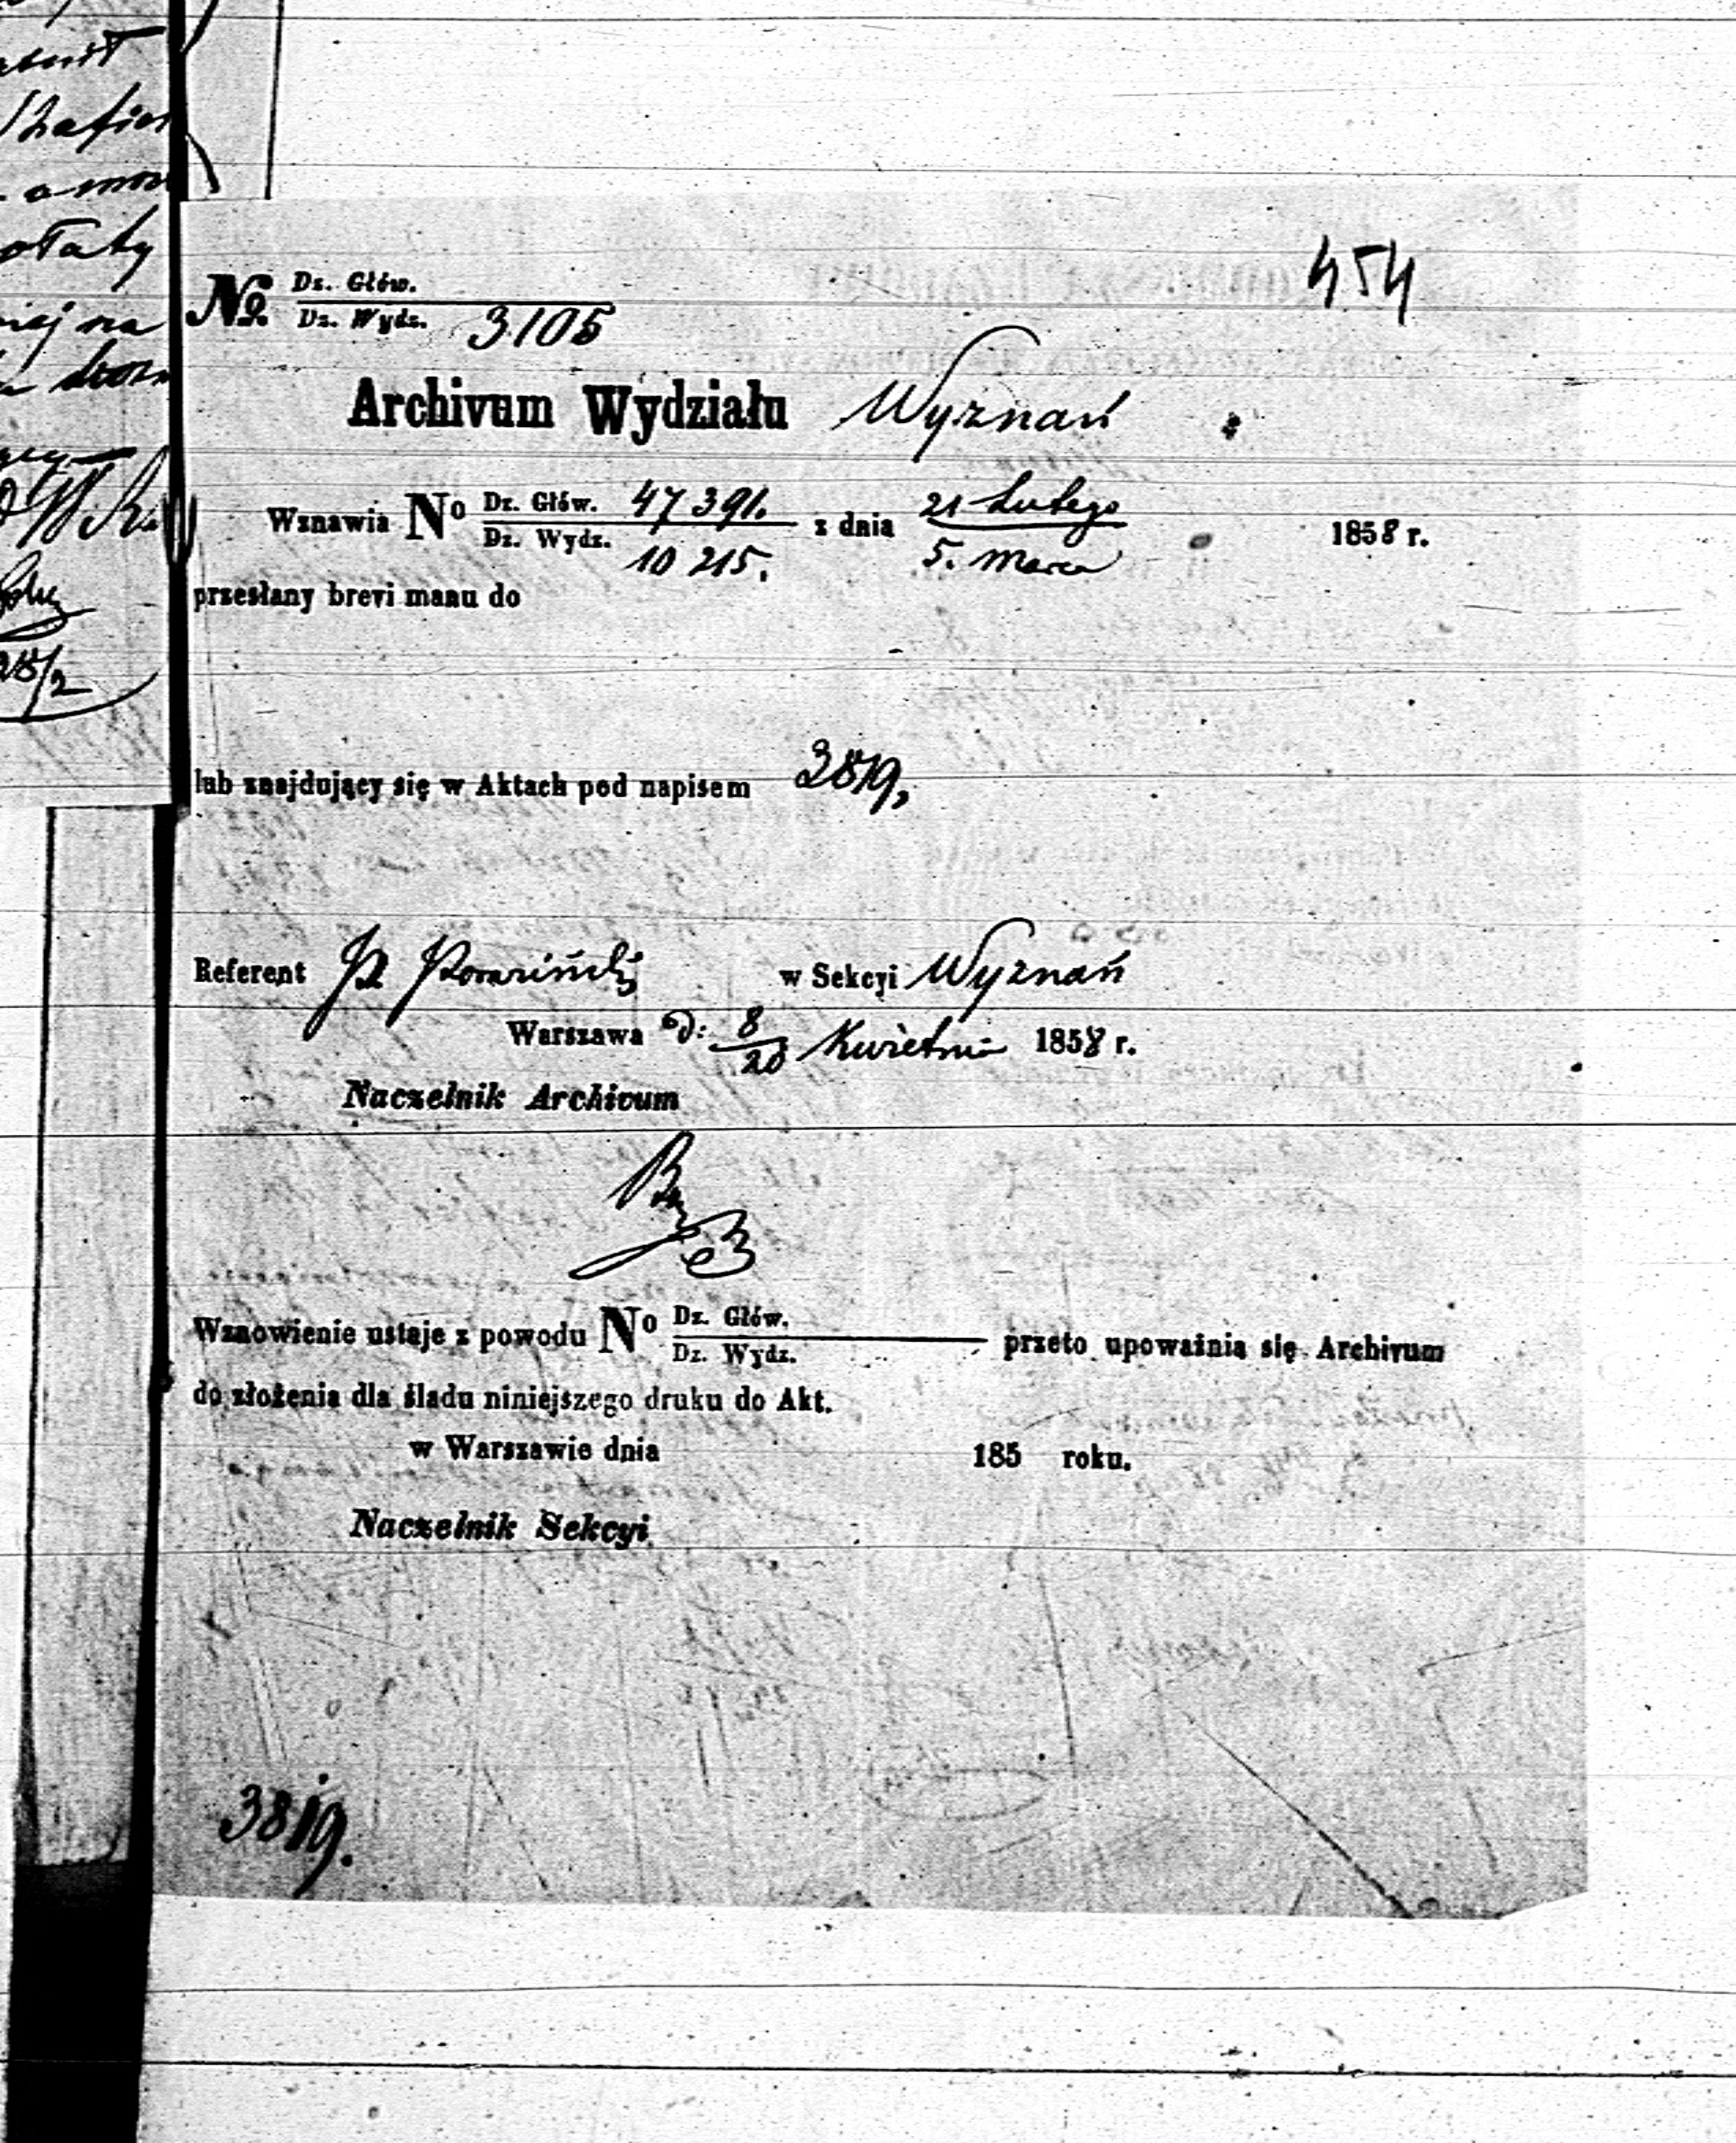 454
№ Dz. Głów.
Dz. Wydz. 3105
Archivum Wydziału Wyznań
Wznawia No Dz. Głów. 47391. z dnia 21 Lutego 1858 r.
Dz. Wydz. 10215. 5. Marca
przesłany brevi manu do
lub znajdujący się w Aktach pod napisem 3819,
Referent w Sekcyi Wyznań
Warszawa d: 8/20 Kwietnia 1858 r.
Naczelnik Archivum
Wznowienie ustaje z powodu No Dz. Głów. przeto upoważnia się Archivum
Dz. Wydz.
do złożenia dla śladu niniejszego druku do Akt.
w Warszawie dnia 185 roku.
Naczelnik Sekcyi
3819.